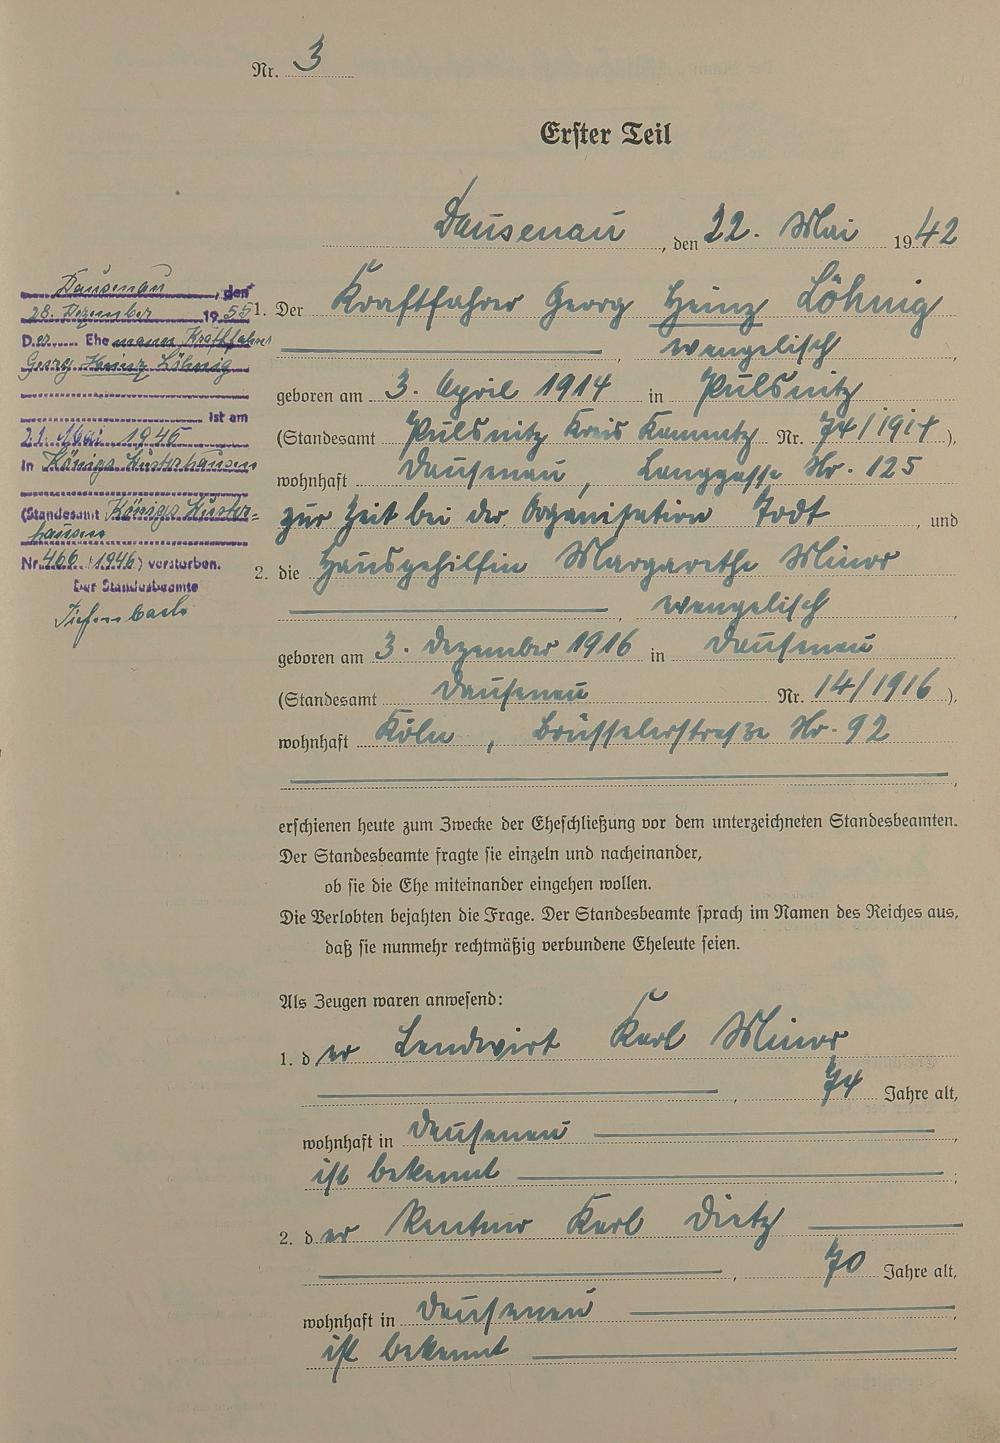 Nr. 3
Erster Teil
Dausenau, den 22. Mai 1942
1. Der Kraftfahrer Georg Heinz Löhnig
, evangelisch,
geboren am 3. April 1914 in Pulsnitz
(Standesamt Pulsnitz Kreis Kamentz Nr. 74/1914),
wohnhaft Dausenau, Langgasse Nr. 125
zur Zeit bei der Organisation Todt, und
2. die Hausgehilfin Margarethe Minor
, evangelisch,
geboren am 3. Dezember 1916 in Dausenau
(Standesamt Dausenau Nr. 14/1916),
wohnhaft Köln, Brüsselerstraße Nr. 92
,
erschienen heute zum Zwecke der Eheschließung vor dem unterzeichneten Standesbeamten.
Der Standesbeamte fragte sie einzeln und nacheinander,
ob sie die Ehe miteinander eingehen wollen.
Die Verlobten bejahten die Frage. Der Standesbeamte sprach im Namen des Reiches aus,
daß sie nunmehr rechtmäßig verbundene Eheleute seien.
Als Zeugen waren anwesend:
1. der Landwirt Karl Minor
, 74 Jahre alt,
wohnhaft in Dausenau,
ist bekannt;
2. der Rentner Karl Dietz
, 70 Jahre alt,
wohnhaft in Dausenau,
ist bekannt
Dausenau, den
28. Dezember 1955
Der Ehemann, Kraftfahrer
Georg Heinz Löhnig
ist am
21. Mai 1946
in Königs Wusterhausen
(Standesamt Königs Wuster=
hausen
Nr. 466/1946) verstorben.
Der Standesbeamte
Tiefenbach